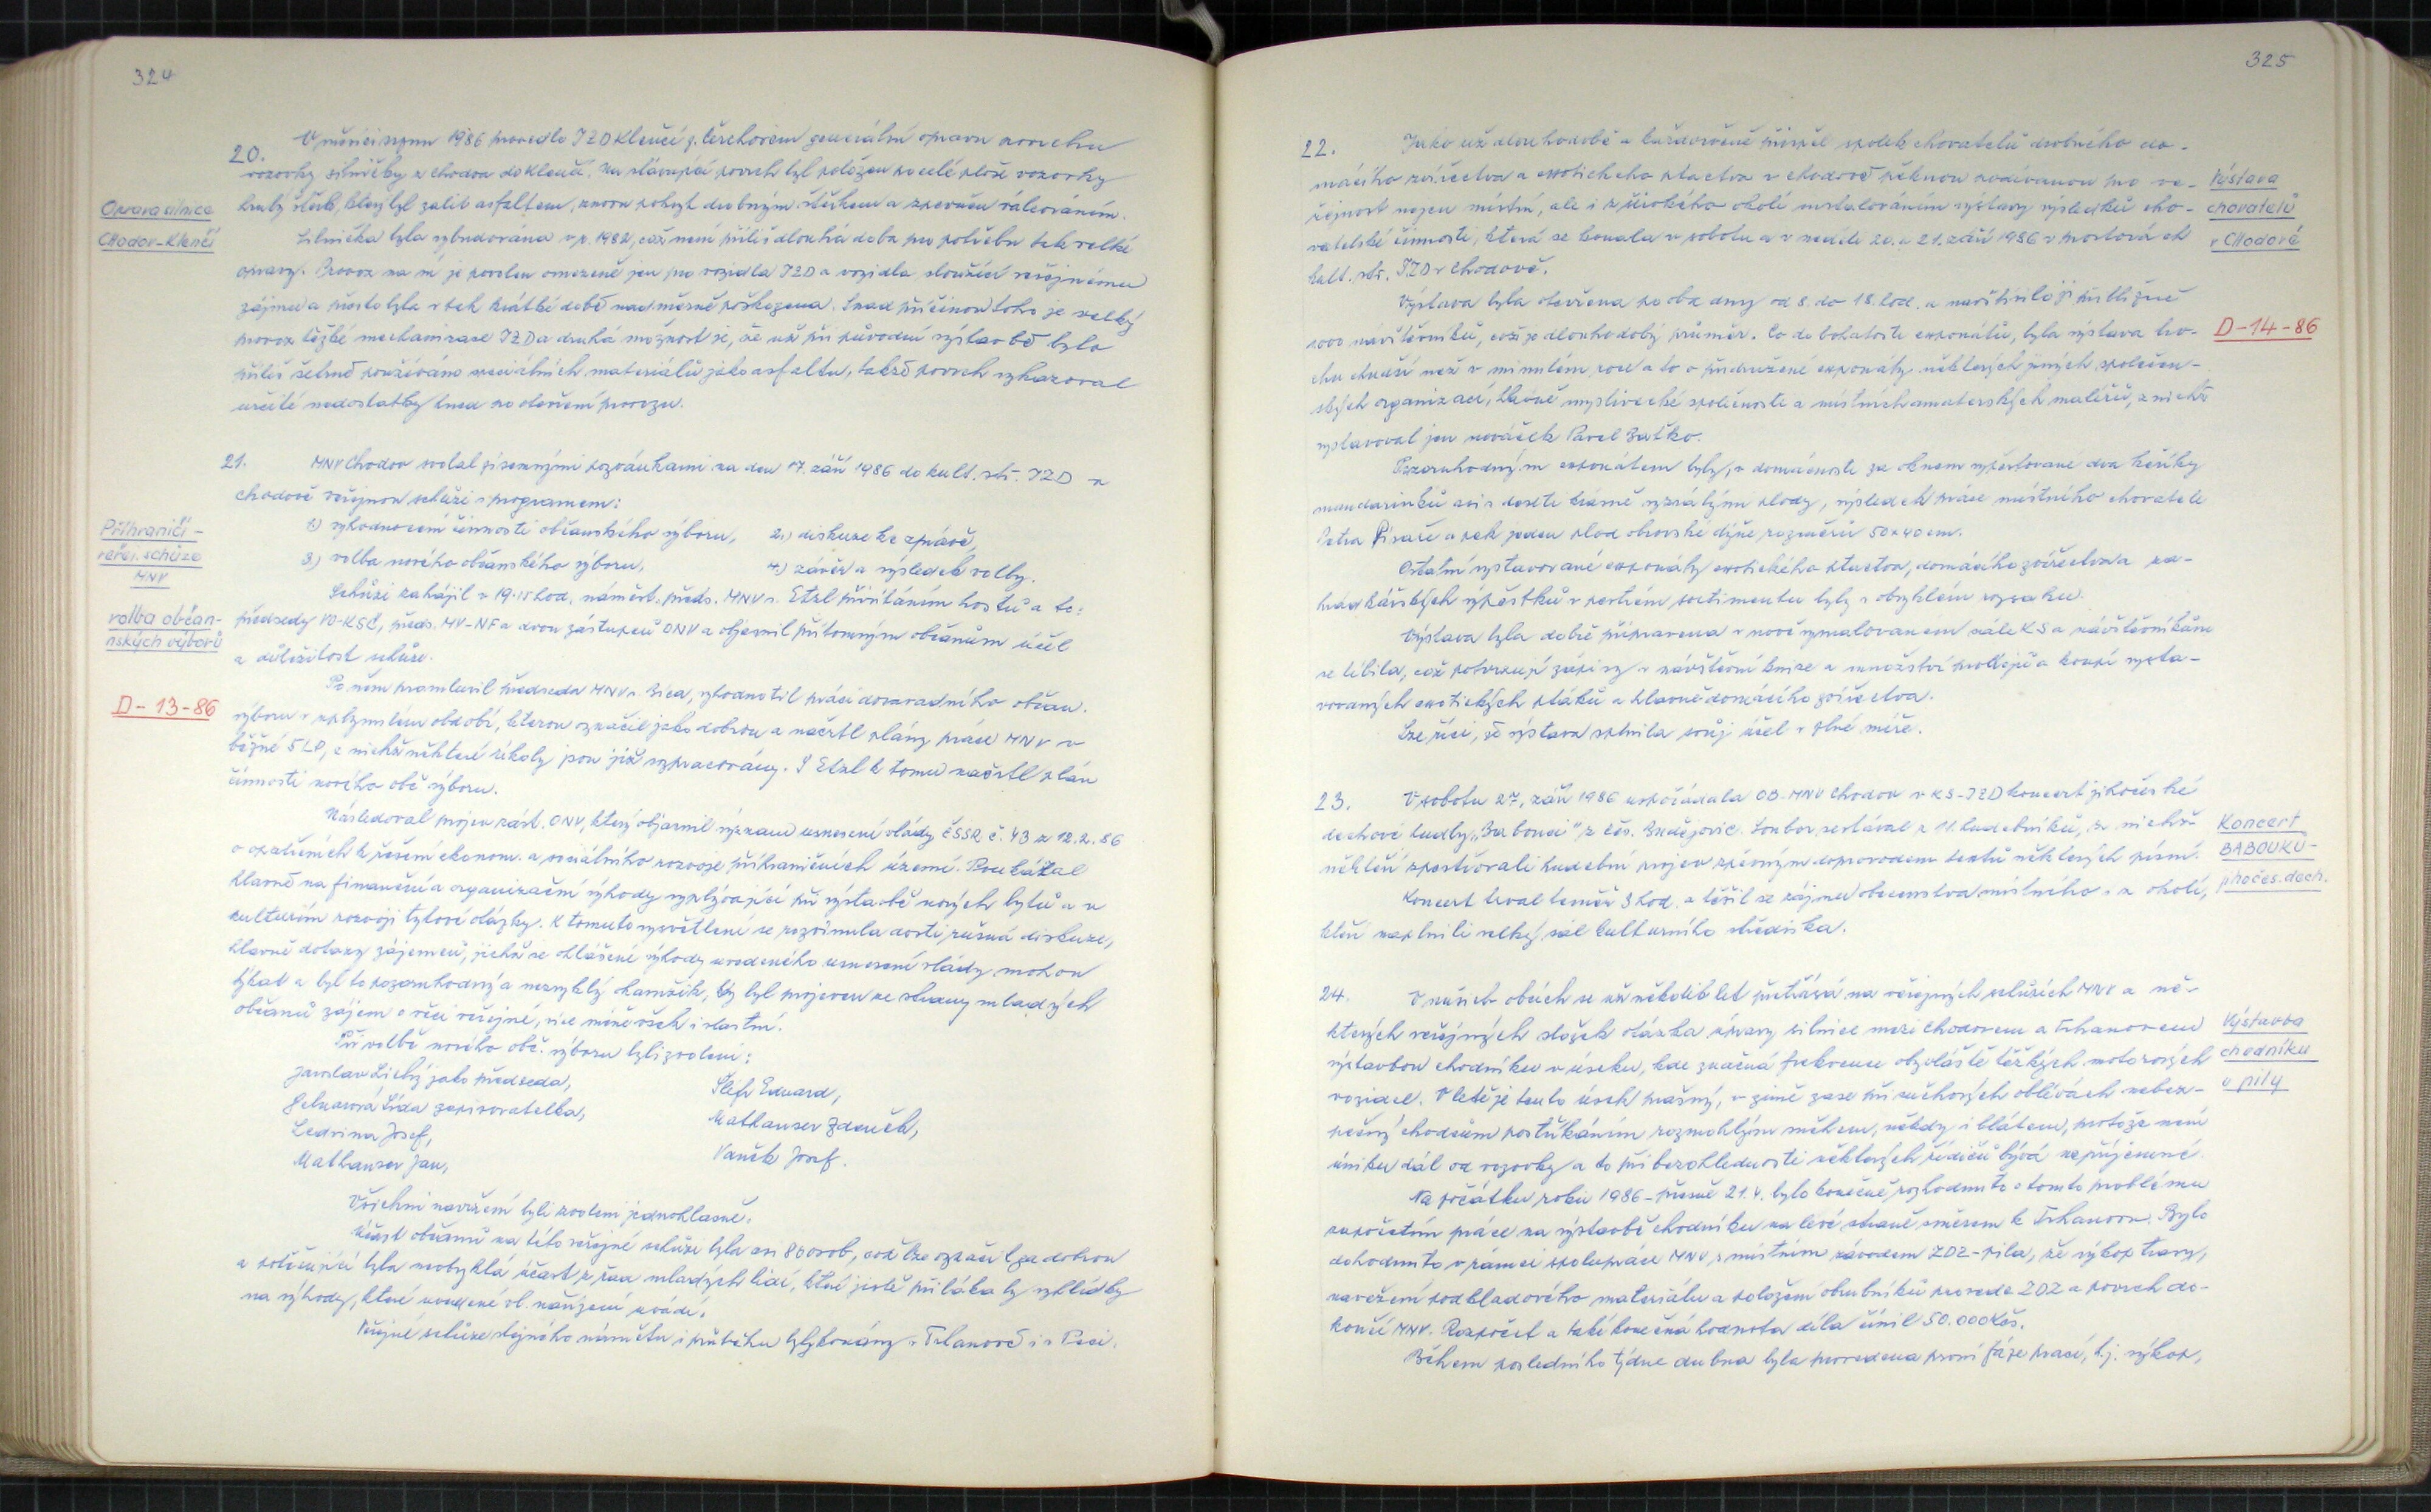 324
20. V měsíci srpnu 1986 provedlo JZD Klenčí p. Čerchovem generální opravu povrchu
vozovky silničky z Chodova do Klenčí. Na stávající povrch byl položen po celé ploše vozovky
hrubý štěrk, který byl zalit asfaltem, znovu pokryt drobným štěrkem a zpevněn válcováním.
Oprava silnice
Chodov-Klenčí
Silnička byla vybudována v r. 1982, což není příliš dlouhá doba pro potřebu tak velké
opravy. Provoz na ní je povolen omezeně jen pro vozidla JZD a vozidla sloužící veřejnému
zájmu a přesto byla v tak krátké době nadměrně poškozena. Snad příčinou toho je velký
provoz těžké mechanizace JZD a druhá možnost je, že už při původní výstavbě bylo
příliš šetrně používáno speciálních materiálů jako asfaltu, takže povrch vykazoval
určité nedostatky hned po otevření provozu.
21. MNV Chodov svolal písemnými pozvánkami na den 17. září 1986 do kult. stř. JZD v
Chodově veřejnou schůzi s programem:
Příhraničí -
veřej. schůze
MNV
1.) vyhodnocení činnosti občanského výboru, 2.) diskuze ke zprávě,
3.) volba nového občanského výboru, 4.) závěr a výsledek volby.
volba občan-
nských výborů
Schůzi zahájil v 19.15 hod. náměst. předs. MNV s. Etzl přivítáním hostů a to:
předsedy VO-KSČ, předs. MV-NF a dvou zástupců ONV a objasnil přítomným občanům účel
a důležitost schůze.
D-13-86
Po něm promluvil předseda MNV s. Bica, vyhodnotil práci dosavadního občan.
výboru v uplynulém období, kterou označil jako dobrou a načrtl plány práce MNV v
běžné 5LP, z nichž některé úkoly jsou již vypracovány. S Etzl k tomu načrtl plán
činnosti nového obč výboru.
Následoval projev zást. ONV, který objasnil význam usnesení vlády ČSSR č. 43 z 12.2.86
o opatřeních k řešení ekonom. a sociálního rozvoje příhraničních území. Poukázal
hlavně na finanční a organizační výhody vyplývající při výstavbě nových bytů a v
kulturním rozvoji bytové otázky. K tomuto vysvětlení se rozvinula dosti rušná diskuze,
hlavně dotazy zájemců, jichž se ohlášené výhody uvedeného usnesení vlády mohou
týkat a byl to pozoruhodný a nezvyklý okamžik, kdy byl projeven ze strany mladých
občanů zájem o věci veřejné, více méně však i vlastní.
Při volbě nového obč. výboru byli zvoleni:
Jaroslav Lichý jako předseda, Šlefr Eduard,
Lída zapisovatelka, Mathauser Zdeněk,
Ledvina Josef, Vaněk Josef.
Mathauser Jan,
Všichni navržení byli zvoleni jednohlasně.
Účast občanů na této veřejné schůzi byla asi 80 osob, což lze označit za dobrou
a potěšující byla neobyklá účast z řad mladých lidí, které jistě přilákaly vyhlídky
na výhody, které uvedené vl. nařízení uvádí.
Veřejné schůze stejného námětu i průběhu byly konány v Trhanově i v Peci.
325
22. Jako už dlouhodobě a každoročně přispěl spolek chovatelů drobného do-
mácího zvířectva a exotického ptactva v Chodově pěknou podívanou pro ve-
řejnost nejen místní, ale i z širokého okolí instalováním výstavy výsledků cho-
vatelské činnosti, která se konala v sobotu a v neděli 20. a 21. září 1986 v prostorách
kult. stř. JZD v Chodově.
Výstava
chovatelů
v Chodově
Výstava byla otevřena po oba dny od 8. do 18. hod. a navštívilo ji přibližně
1000 návštěvníků, což je dlouhodobý průměr. Co do bohatosti exponátů, byla výstava tro-
chu chudší než v minulém roce a to o přidružené exponáty některých jiných společen-
ských organizací, hlavně myslivecké společnosti a místních amatérských malířů, z nichž
vystavoval jen nováček Pavel Baťko.
D-14-86
Pozoruhodným exponátem byly, v domácnosti za oknem vypěstované dva keříky
mandarinků asi s deseti krásně vyzrálými plody, výsledek práce místního chovatele
Petra Písaře a pak jeden plod obrovské dýně rozměrů 50x40 cm.
Ostatní vystavované exponáty exotického ptactva, domácího zvířectva a za-
hrádkářských výpěstků v pestrém sortimentu byly v obvyklém rozsahu.
Výstava byla dobře připravena v nově vymalovaném sále KS a návštěvníkům
se líbila, což potvrzují zápisy v návštěvní knize a množství prodejů a koupí vysta-
vovaných exotických ptáků a hlavně domácího zvířectva.
Lze říci, že výstava splnila svůj účel v plné míře.
23. V sobotu 27. září 1986 uspořádala OB-MNV Chodov v KS-JZD koncert jihočeské
dechové hudby „Babouci" z Čes. Budějovic. Soubor sestával z 11 hudebníků, z nichž
někteří zpestřovali hudební projev zpěvným doprovodem textů některých písní.
Koncert
BABOUKU-
jihočes. dech.
Koncert trval téměř 3 hod. a těšil se zájmu obecenstva místního i z okolí,
kteří naplnili velký sál kulturního střediska.
24. V našich obcích se už několik let přetřásá na veřejných schůzích MNV a ně-
kterých veřejných složek otázka úpravy silnice mezi Chodovem a Trhanovem
výstavbou chodníku v úseku, kde značná frekvence obzvláště těžkých motorových
vozidel. V létě je tento úsek prašný, v zimě zase při sněhových oblevách nebez-
pečný chodcům postřikáním rozmoklým sněhem, někdy i blátem, protože není
úniku dál od vozovky a to při bezohlednosti některých řidičů bývá nepříjemné.
Výstavba
chodníku
u pily
Na počátku roku 1986 - přesně 21.4. bylo konečně rozhodnuto o tomto problému
započetím práce na výstavbě chodníku na levé straně směrem k Trhanovu. Bylo
dohodnuto v rámci spolupráce MNV s místním závodem ZDZ-pila, že výkop trasy,
navežení podkladového materiálu a položení obrubníků provede ZDZ a povrch do-
končí MNV. Rozpočet a také konečná hodnota díla činil 50.000 Kčs.
Během posledního týdne dubna byla provedena první fáze prací, t.j. výkop,